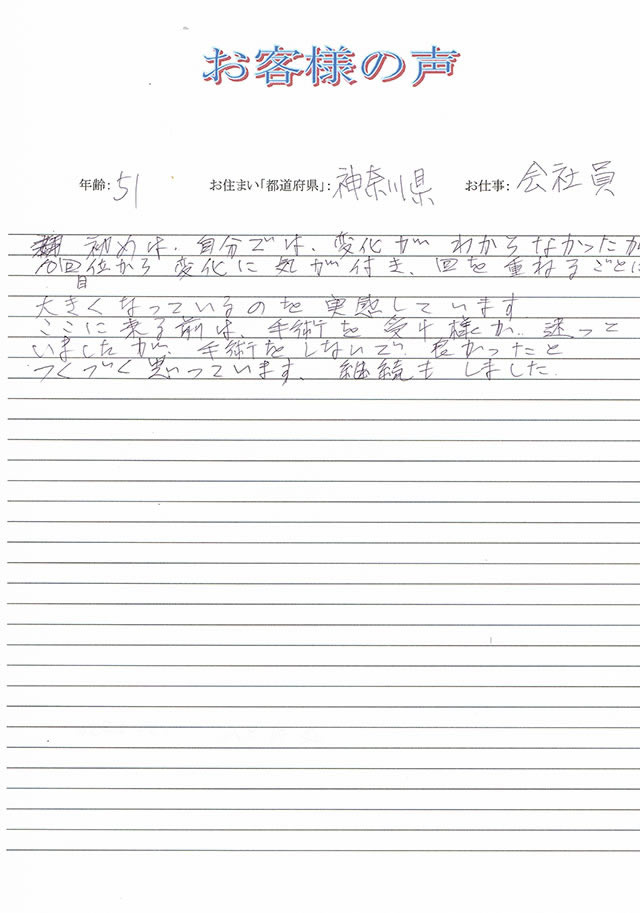 お客様の声
年齢: 51 お住まい「都道府県」: 神奈川県 お仕事: 会社員
初めは、自分では、変化が わからなかったが
10回位から 変化に 気が付き、回を 重ねるごとに
目
大きくなっているのを 実感しています
ここに来る前は、手術を 受け様か、迷って
いましたが、手術を しないで 良かったと
つくづく思いっています、 継続も しました